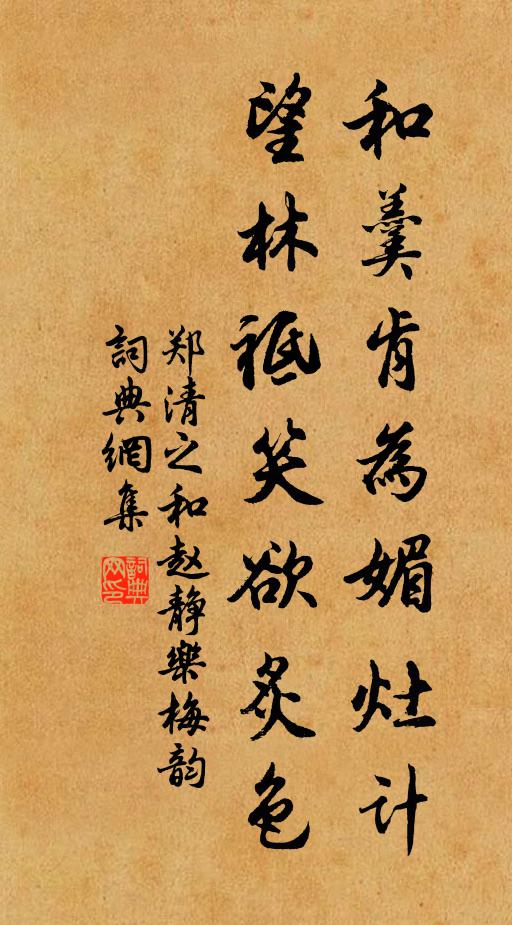 和羹肯為媚灶计
望林祗笑欲炙色
郑清之和赵静樂梅韵
詞典網集
詞典网印